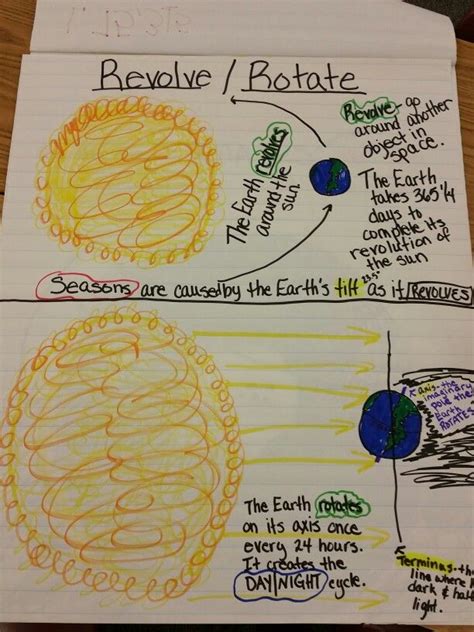 Revolve / Rotate
The Earth
revolves
around the
sun.
Revolve - go
around another
object in
space.
The Earth
takes 365 1/4
days to
complete its
revolution of
the sun
23.5°
Seasons are caused by the Earth's tilt as it REVOLVES
axis - the
imaginary
pole the
Earth
ROTATES
The Earth rotates
on its axis once
every 24 hours.
It creates the
DAY/NIGHT cycle.
Terminus - the
line where
dark & half
light.